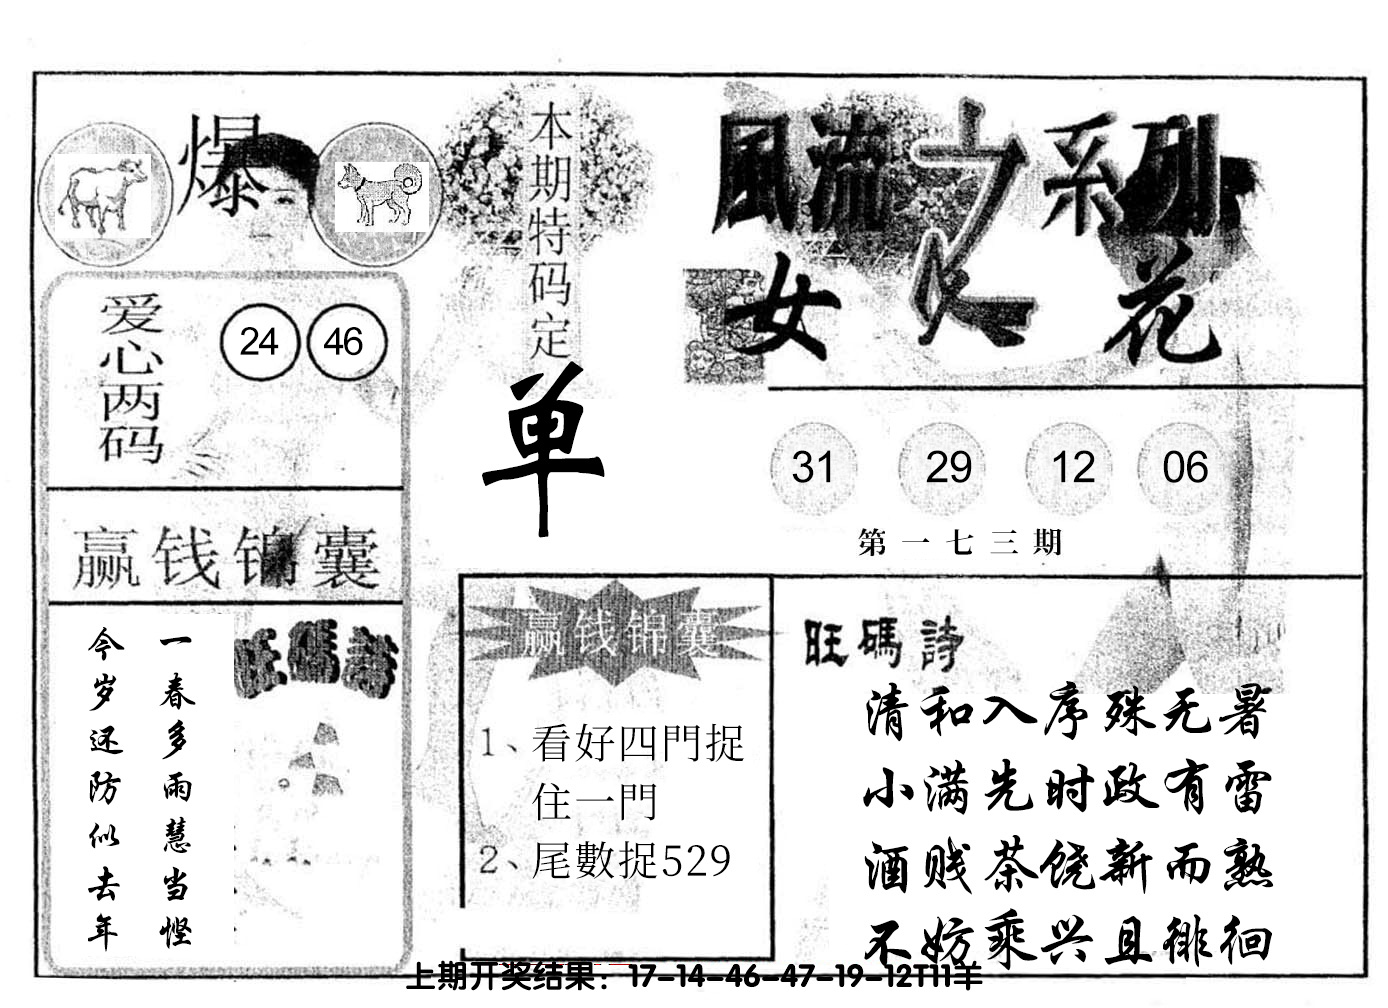 爆
本期特码定
单
風流之系列
女人花
爱心两码
24 46
31 29 12 06
第一七三期
赢钱锦囊
一春多雨慧当悭
今岁还防似去年
旺碼詩
赢钱锦囊
1、看好四門捉
住一門
2、尾數捉529
旺碼詩
清和入序殊无暑
小满先时政有雷
酒贱茶饶新而熟
不妨乘兴且徘徊
上期开奖结果：17-14-46-47-19-12T11羊